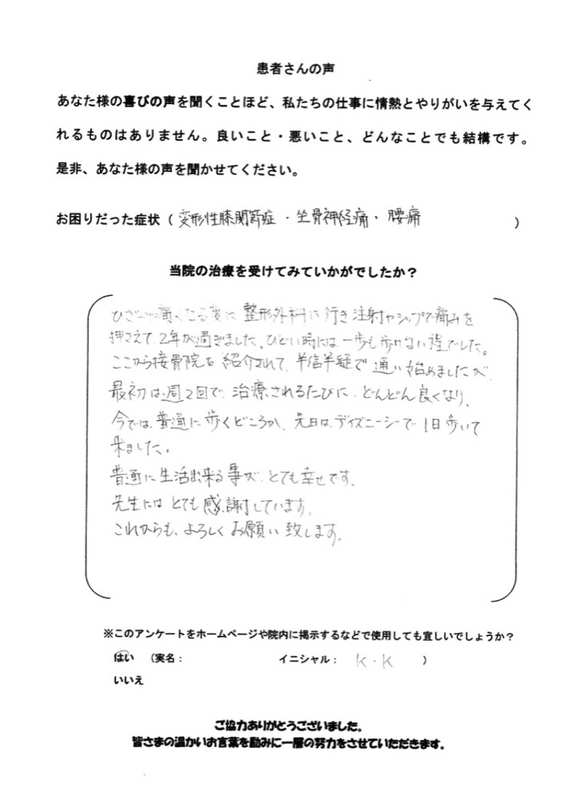 患者さんの声
あなた様の喜びの声を聞くことほど、私たちの仕事に情熱とやりがいを与えてく
れるものはありません。良いこと・悪いこと、どんなことでも結構です。
是非、あなた様の声を聞かせてください。
お困りだった症状（変形性膝関節症・坐骨神経痛・腰痛）
当院の治療を受けてみていかがでしたか？
ひざが痛くなる度に整形外科に行き注射やシップで痛みを
押さえて、2年が過ぎました。ひどい時には一歩も歩けない程でした。
ここから接骨院を紹介されて、半信半疑で通い始めましたが
最初は週2回で、治療されるたびに、どんどん良くなり、
今では、普通に歩くどころか、先日はディズニーシーで1日歩いて
来ました。
普通に生活出来る事が、とても幸せです。
先生にはとても感謝しています。
これからも、よろしくお願い致します。
※このアンケートをホームページや院内に掲示するなどで使用しても宜しいでしょうか？
はい （実名： イニシャル： K・K ）
いいえ
ご協力ありがとうございました。
皆さまの温かいお言葉を励みに一層の努力をさせていただきます。